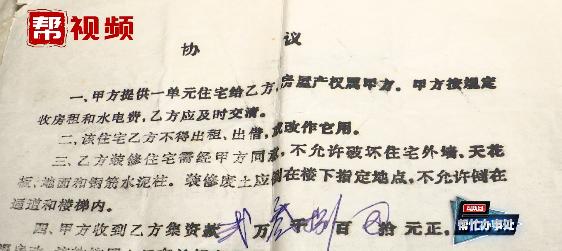 帮视频
协 议
一、甲方提供一单元住宅给乙方，房屋产权属甲方。甲方按规定
收房租和水电费，乙方应及时交清。
二、该住宅乙方不得出租、出借，或改作它用。
三、乙方装修住宅需经甲方同意，不允许破坏住宅外墙、天花
板、地面和钢筋水泥柱。装修废土应倒在楼下指定地点，不允许倒在
通道和楼梯内。
四、甲方收到乙方集资款贰万叁仟捌百 拾 元正。
帮忙办事处